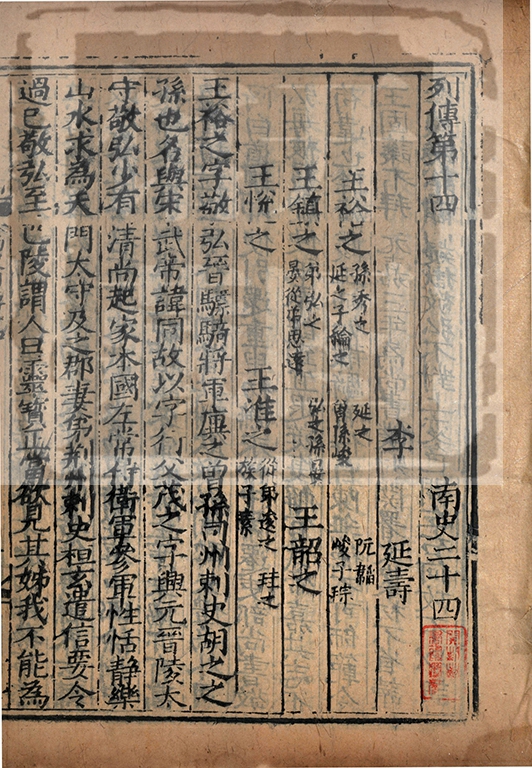 列傳第十四 南史二十四
李 延壽
王裕之 孫秀之 延之 阮韜
延之子綸之 曾孫峻 峻子琮
王鎮之 弟弘之 弘之孫晏
晏從弟思遠 王韶之
王悅之 王准之 從弟逡之 珪之
族子素
王裕之字敬弘晉驃騎將軍廙之曾孫司州刺史胡之之
孫也名與宋武帝諱同故以字行父茂之字興元晉陵太
守敬弘少有清尚起家本國左常侍衛軍參軍性恬靜樂
山水求為天門太守及之郡妻弟荊州刺史桓玄遣信要令
過已敬弘至巴陵謂人曰靈寶正當欲見其姊我不能為